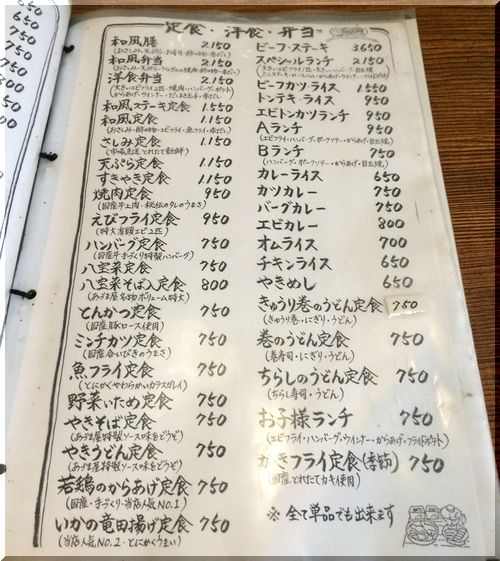 定食・洋食・弁当
和風膳 2.150
和風弁当 2.150
洋食弁当 2.150
和風ステーキ定食 1.550
和風定食 1.550
さしみ定食 1.150
天ぷら定食 1.150
すきやき定食 1.150
焼肉定食 950
えびフライ定食 950
(特大有頭エビ2匹)
ハンバーグ定食 750
(国産牛手づくり特製ハンバーグ)
八宝菜定食 750
八宝菜そば入定食 800
(あづま屋名物ボリューム特大)
とんかつ定食 750
(国産豚ロース使用)
ミンチカツ定食 750
(国産合いびきのうまさ)
魚フライ定食 750
(とにかくやわらかいカラスガレイ)
野菜いため定食 750
やきそば定食 750
(あづま屋特製ソース味をどうぞ)
やきうどん定食 750
(あづま屋特製ソース味をどうぞ)
若鶏のからあげ定食 750
(国産・手づくり・当店人気NO.1)
いかの竜田揚げ定食 750
(当店人気NO.2・とにかくうまい)
ビーフ・ステーキ 3650
スペシャルランチ 2.150
ビーフカツ・ライス 1.550
トンテキ・ライス 950
エビトンカツライス 950
Aランチ 950
(エビフライ・ハンバーグ・ポークソテー・からあげ・目玉焼)
Bランチ 750
(ハンバーグ・ポークソテー・からあげ・目玉焼)
カレーライス 650
カツカレー 750
バーグカレー 750
エビカレー 800
オムライス 700
チキンライス 650
やきめし 650
きゅうり巻のうどん定食 750
(きゅうり巻・にぎり・うどん)
巻のうどん定食 750
(巻寿司・にぎり・うどん)
ちらしのうどん定食 750
(ちらし寿司・うどん)
お子様ランチ 750
(エビフライ・ハンバーグ・ウインナー・からあげ・フライドポテト)
かきフライ定食(季節) 750
(国産とれたてカキ使用)
※ 全て単品でも出来ます